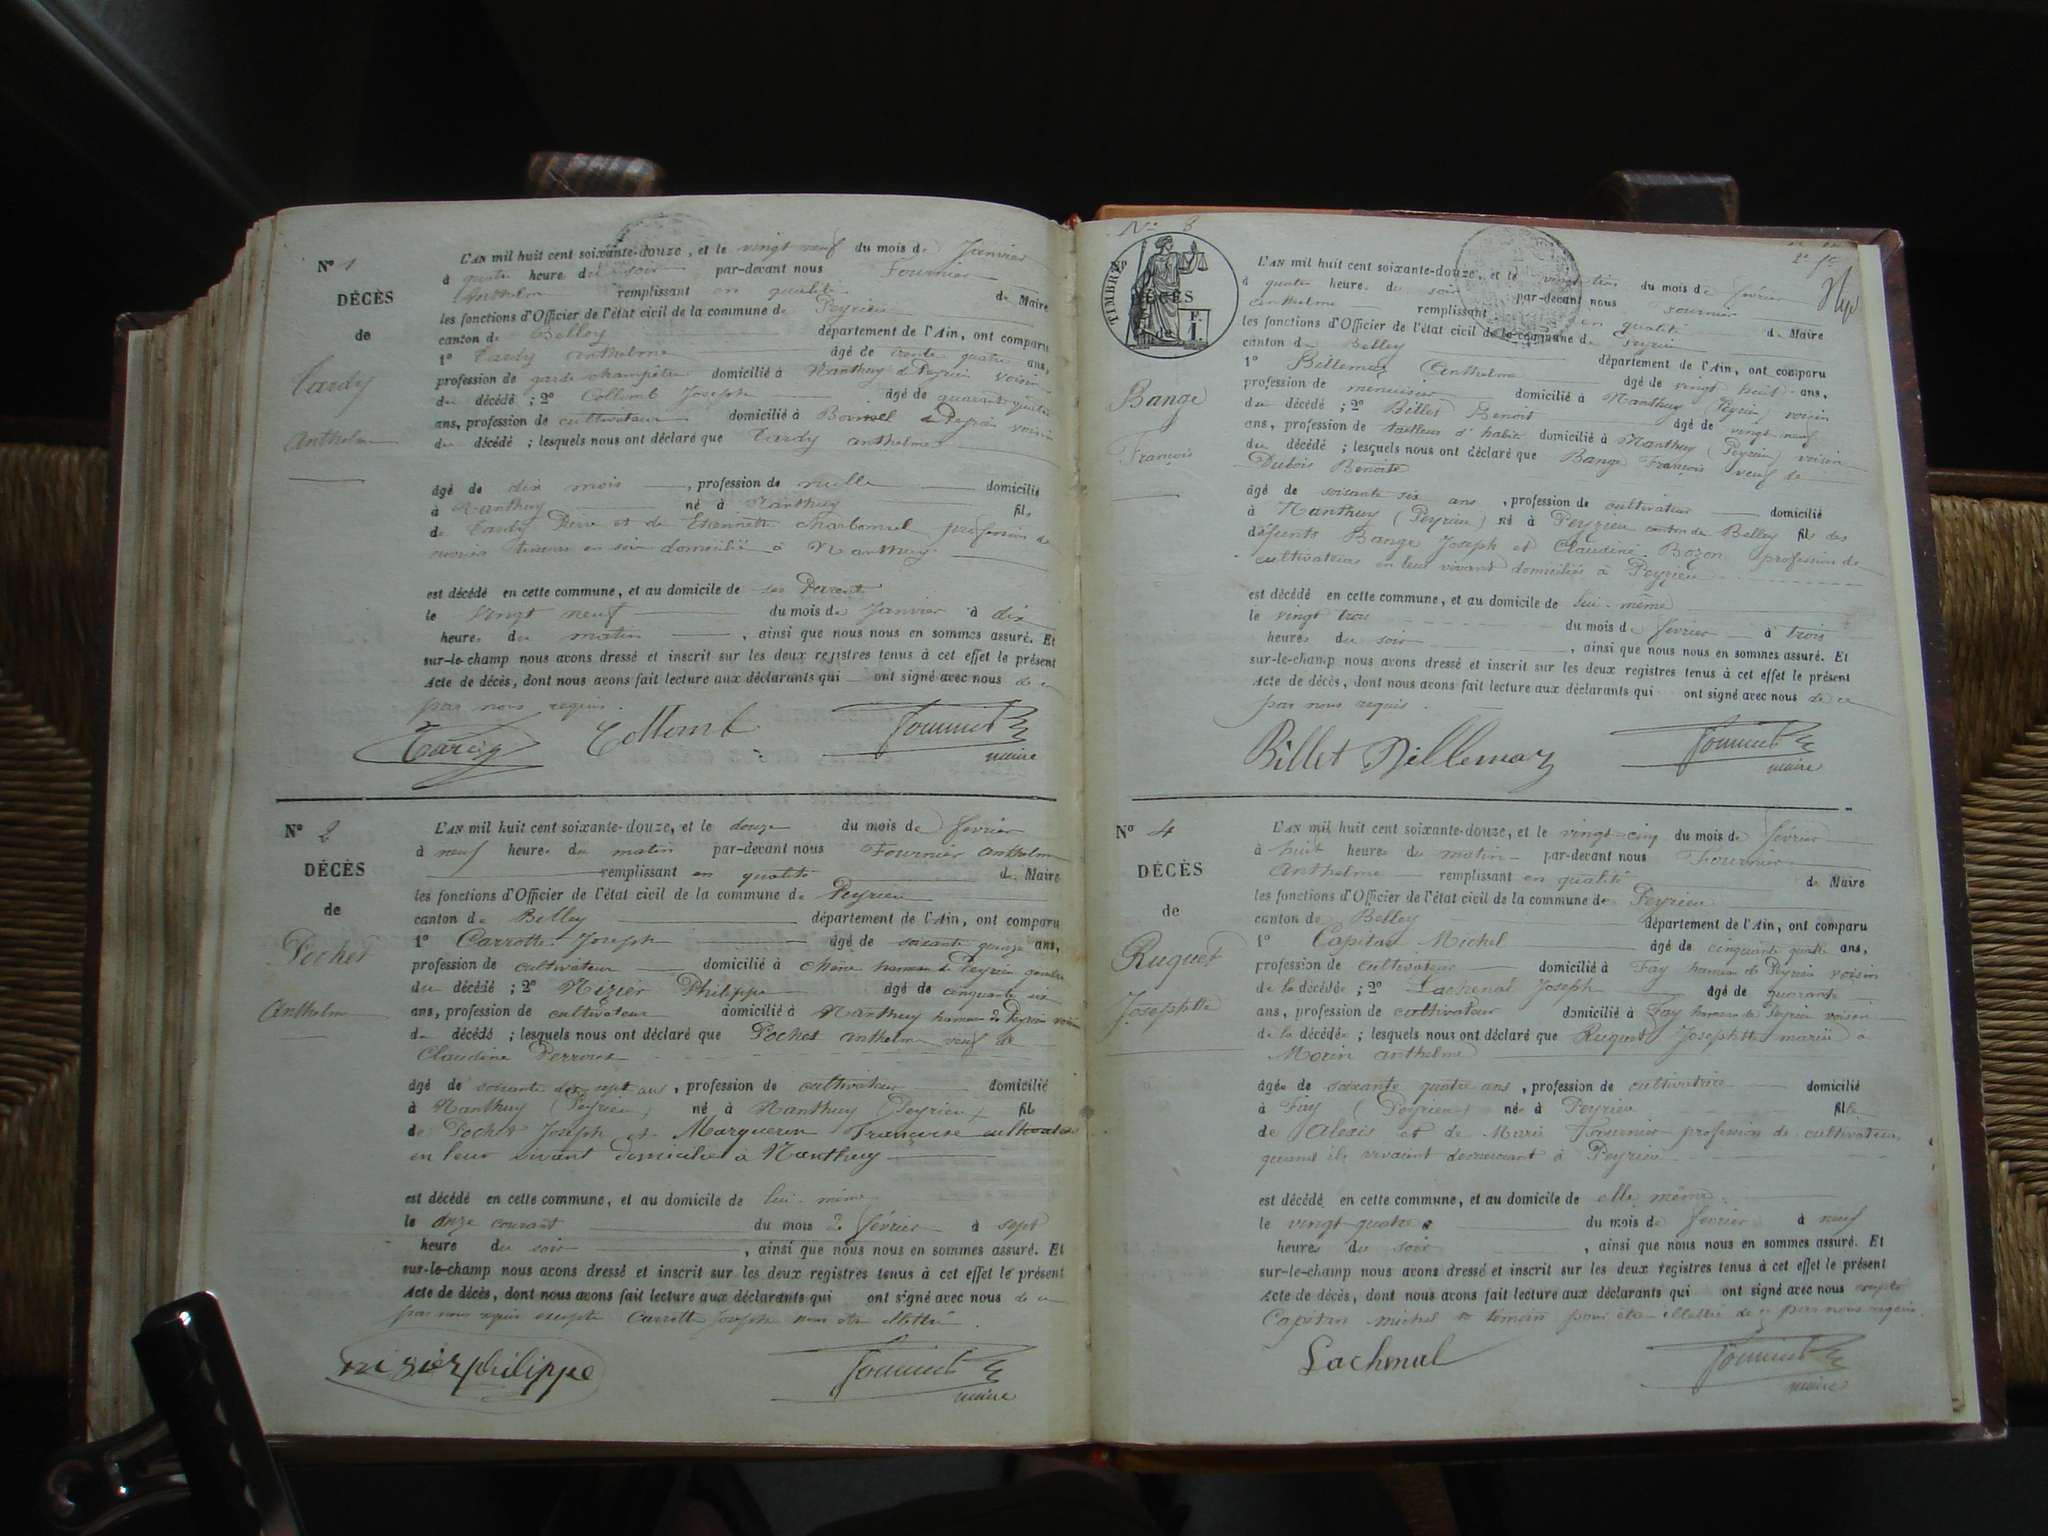 Nº 1
DÉCÈS
de
Tardy
Anthelme
L'AN mil huit cent soixante-douze, et le vingt neuf du mois de Janvier
à quatre heure du soir par-devant nous Fournier
Anthelme remplissant en qualité de Maire
les fonctions d'Officier de l'état civil de la commune de Peyrieu
canton de Belley département de l'Ain, ont comparu
1º Tardy Anthelme âgé de trente quatre ans,
profession de garde champêtre domicilié à Nanthuy de Peyrieu voisin
du décédé ; 2º Collomb Joseph âgé de quarante quatre
ans, profession de cultivateur domicilié à de Peyrieu voisin
du décédé ; lesquels nous ont déclaré que Tardy anthelme
âgé de dix mois, profession de nulle domicilié
à Nanthuy né à Nanthuy fils
de Tardy Pierre et de Etiennette Charbonnel profession de
en soie domicilié à Nanthuy
est décédé en cette commune, et au domicile de ses Parent
le vingt neuf du mois de Janvier à dix
heures du matin, ainsi que nous nous en sommes assuré. Et
sur-le-champ nous avons dressé et inscrit sur les deux registres tenus à cet effet le présent
Acte de décès, dont nous avons fait lecture aux déclarants qui ont signé avec nous de ce
par nous requis.
Tardy Collomb Fournier
maire
Nº 2
DÉCÈS
de
Pochet
Anthelme
L'AN mil huit cent soixante-douze, et le douze du mois de février
à neuf heures du matin par-devant nous Fournier anthelme
remplissant en qualité de Maire
les fonctions d'Officier de l'état civil de la commune de Peyrieu
canton de Belley département de l'Ain, ont comparu
1º Carrotte Joseph âgé de soixante quinze ans,
profession de cultivateur domicilié à hameau de Peyrieu gendre
du décédé ; 2º Nizier Philippe âgé de cinquante six
ans, profession de cultivateur domicilié à Nanthuy hameau de Peyrieu voisin
du décédé ; lesquels nous ont déclaré que Pochet anthelme veuf de
Claudine Perroux
âgé de soixante dix sept ans, profession de cultivateur domicilié
à Nanthuy (Peyrieu) né à Nanthuy (Peyrieu) fils
de Pochet Joseph et Margueron Françoise cultivateur
en leur vivant domicilié à Nanthuy
est décédé en cette commune, et au domicile de lui-même
le onze courant du mois de février à sept
heure du soir, ainsi que nous nous en sommes assuré. Et
sur-le-champ nous avons dressé et inscrit sur les deux registres tenus à cet effet le présent
Acte de décès, dont nous avons fait lecture aux déclarants qui ont signé avec nous de ce
par nous requis excepté Carrotte Joseph pour être illettré.
nizier philippe Fournier
maire
Nº 3
TIMBRE
DÉCÈS
de
Bange
François
L'AN mil huit cent soixante-douze, et le vingt trois du mois de février
à quatre heures du soir par-devant nous Fournier
anthelme remplissant en qualité de Maire
les fonctions d'Officier de l'état civil de la commune de Peyrieu
canton de Belley département de l'Ain, ont comparu
1º Billemaz Anthelme âgé de vingt huit ans,
profession de menuisier domicilié à Nanthuy (Peyrieu) voisin
du décédé ; 2º Billet Benoit âgé de vingt neuf
ans, profession de tailleur d'habit domicilié à Nanthuy (Peyrieu) voisin
du décédé ; lesquels nous ont déclaré que Bange François veuf de
Dubois Benoite
âgé de soixante six ans, profession de cultivateur domicilié
à Nanthuy (Peyrieu) né à Peyrieu canton de Belley fils des
défunts Bange Joseph et Claudine Bozon profession de
cultivateurs en leur vivant domiciliés à Peyrieu
est décédé en cette commune, et au domicile de lui-même
le vingt trois du mois de février à trois
heures du soir, ainsi que nous nous en sommes assuré. Et
sur-le-champ nous avons dressé et inscrit sur les deux registres tenus à cet effet le présent
Acte de décès, dont nous avons fait lecture aux déclarants qui ont signé avec nous de ce
par nous requis.
Billet Billemaz Fournier
maire
Nº 4
DÉCÈS
de
Ruquet
Josephtte
L'AN mil huit cent soixante-douze, et le vingt-cinq du mois de février
à huit heures du matin par-devant nous Fournier
Anthelme remplissant en qualité de Maire
les fonctions d'Officier de l'état civil de la commune de Peyrieu
canton de Belley département de l'Ain, ont comparu
1º Capitan Michel âgé de cinquante quatre ans,
profession de cultivateur domicilié à Fay hameau de Peyrieu voisin
de la décédée ; 2º Lachenal Joseph âgé de quarante
ans, profession de cultivateur domicilié à Fay hameau de Peyrieu voisin
de la décédée ; lesquels nous ont déclaré que Ruquet Josephtte mariée à
Morin anthelme
âgée de soixante quatre ans, profession de cultivatrice domicilié
à Fay (Peyrieu) née à Peyrieu fille
de Alexis et de Marie Fournier profession de cultivateurs
quand ils vivaient demeurant à Peyrieu
est décédé en cette commune, et au domicile de elle même
le vingt quatre du mois de février à neuf
heures du soir, ainsi que nous nous en sommes assuré. Et
sur-le-champ nous avons dressé et inscrit sur les deux registres tenus à cet effet le présent
Acte de décès, dont nous avons fait lecture aux déclarants qui ont signé avec nous excepté
Capitan michel témoin pour être illettré de ce par nous requis.
Lachenal Fournier
maire